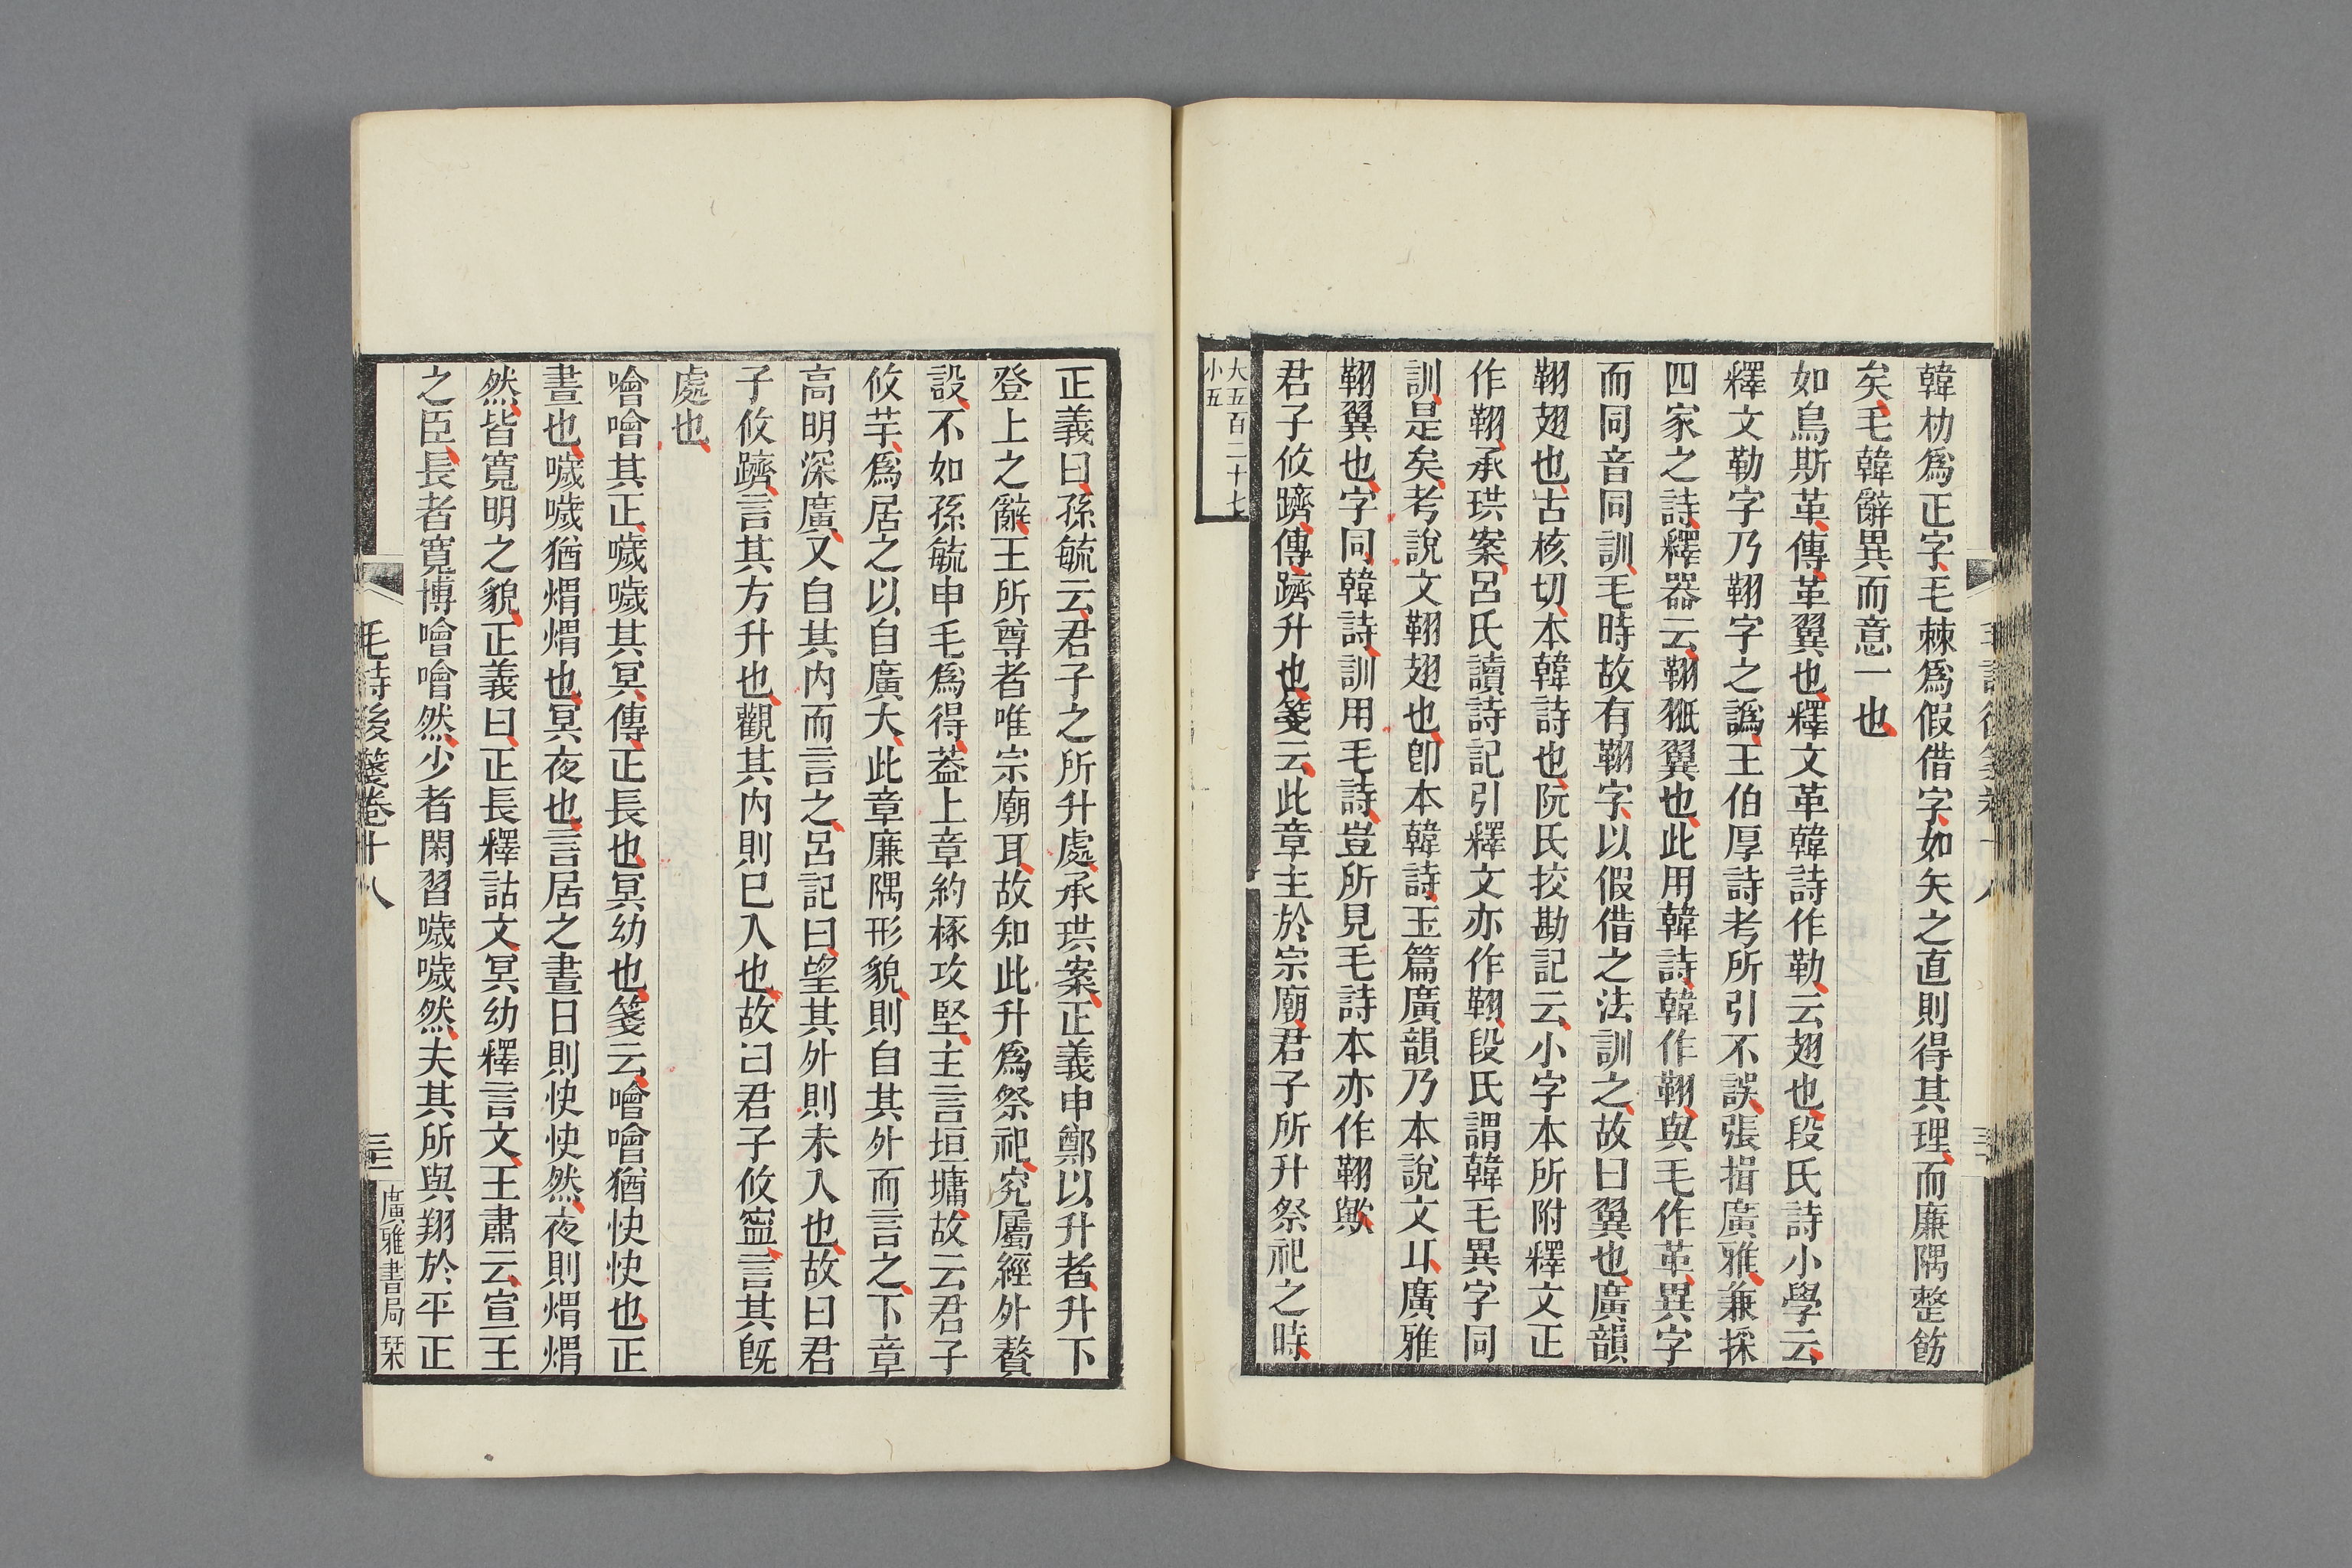 韓朸爲正字毛棘爲假借字如矢之直則得其理而廉隅整飭
矣毛韓辭異而意一也
如鳥斯革傳革翼也釋文革韓詩作勒云翅也段氏詩小學云
釋文勒字乃䩻字之譌王伯厚詩考所引不誤張揖廣雅兼採
四家之詩釋器云䩻翄翼也此用韓詩韓作䩻與毛作革異字
而同音同訓毛時故有䩻字以假借之法訓之故曰翼也廣韻
䩻翅也古核切本韓詩也阮氏挍勘記云小字本所附釋文正
作䩻承珙案呂氏讀詩記引釋文亦作䩻段氏謂韓毛異字同
訓是矣考說文䩻翅也卽本韓詩玉篇廣韻乃本說文耳廣雅
䩻翼也字同韓詩訓用毛詩豈所見毛詩本亦作䩻歟
君子攸躋傳躋升也箋云此章主於宗廟君子所升祭祀之時
大五百二十七
小五
正義曰孫毓云君子之所升處承珙案正義申鄭以升者升下
登上之辭王所尊者唯宗廟耳故知此升爲祭祀究屬經外贅
設不如孫毓申毛爲得葢上章約椓攻堅主言垣墉故云君子
攸芋爲居之以自廣大此章廉隅形貌則自其外而言之下章
高明深廣又自其內而言之呂記曰望其外則未入也故曰君
子攸躋言其方升也觀其內則巳入也故曰君子攸寍言其旣
處也
噲噲其正噦噦其冥傳正長也冥幼也箋云噲噲猶快快也正
晝也噦噦猶煟煟也冥夜也言居之晝日則快快然夜則煟煟
然皆寬明之貌正義曰正長釋詁文冥幼釋言文王肅云宣王
之臣長者寬博噲噲然少者閑習噦噦然夫其所與翔於平正
毛詩後箋卷十八
三二
廣雅書局栞